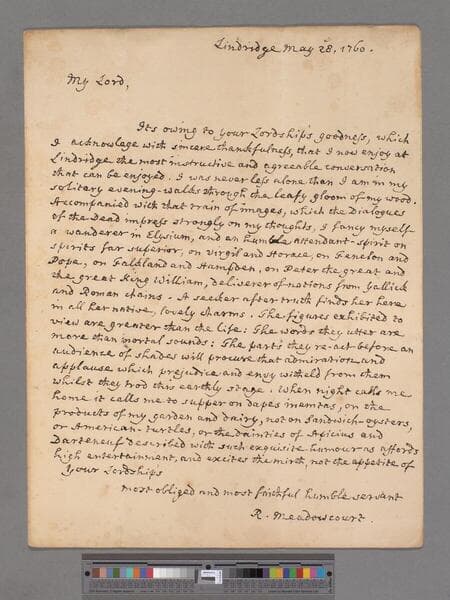 Lindridge May 28, 1760.
My Lord,
Its owing to your Lordships goodness, which
I acknowlege with sincere thankfulness, that I now enjoy at
Lindridge the most instructive and agreeable conversation
that can be enjoyed. I was never less alone than I am in my
solitary evening-walks through the leafy gloom of my wood.
Accompanied with that train of images, which the Dialogues
of the Dead impress strongly on my thoughts, I fancy myself
a wanderer in Elysium, and an humble attendant-spirit on
spirits far superior, on Virgil and Horace, on Fenelon and
Pope, on Falkland and Hampden, on Peter the great and
the great King William, deliverer of nations from Gallick
and Roman chains. A seeker after truth finds her here
in all her native, lovely charms. The figures exhibited to
view are greater than the life: The words they utter are
more than mortal sounds: The parts they re-act before an
audience of shades will procure that admiration and
applause which prejudice and envy witheld from them
whilst they trod this earthly stage. When night calls me
home it calls me to supper on dapes inemtas, on the
products of my garden and dairy, not on Sandwich-oysters,
or American-turtles, or the dainties of Apicius and
Darteneuf described with such exquisite humour as affords
high entertainment, and excites the mirth, not the appetite of
Your Lordships
most obliged and most faithful humble servant
R. Meadowcourt.